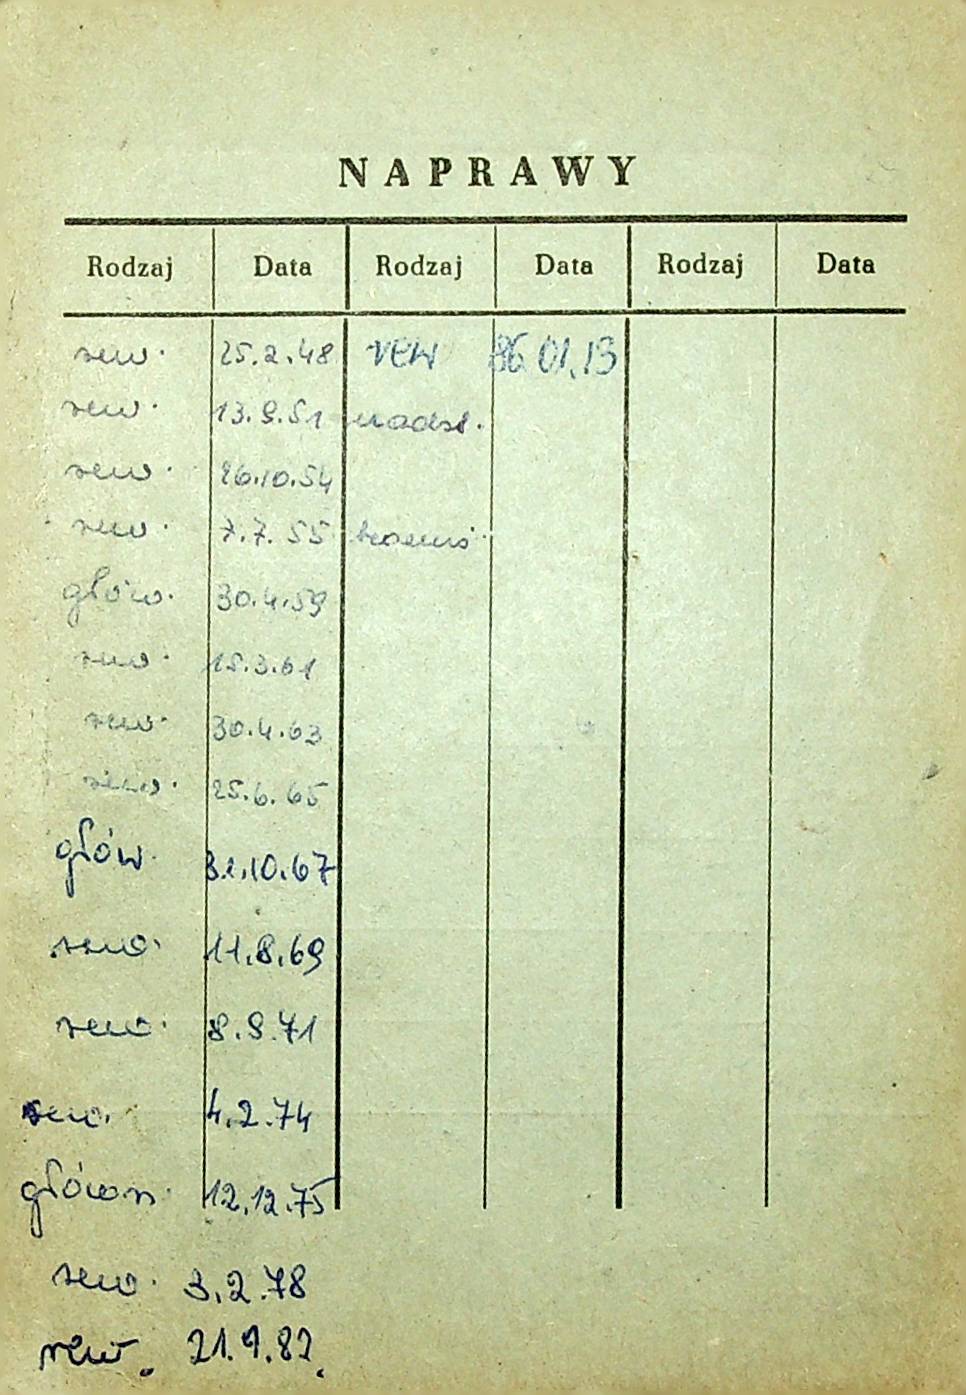 NAPRAWY
Rodzaj Data Rodzaj Data Rodzaj Data
rew. 25.2.48 REW 86.01.13
rew. 13.9.51 nadzl.
rew. 26.10.54
rew. 7.7.55
głów. 30.4.59
rew. 15.3.61
rew. 30.4.63
rew. 25.6.65
głów. 31.10.67
rew. 11.8.69
rew. 8.9.71
rew. 4.2.74
główn. 12.12.75
rew. 3.2.78
rew. 21.9.82.